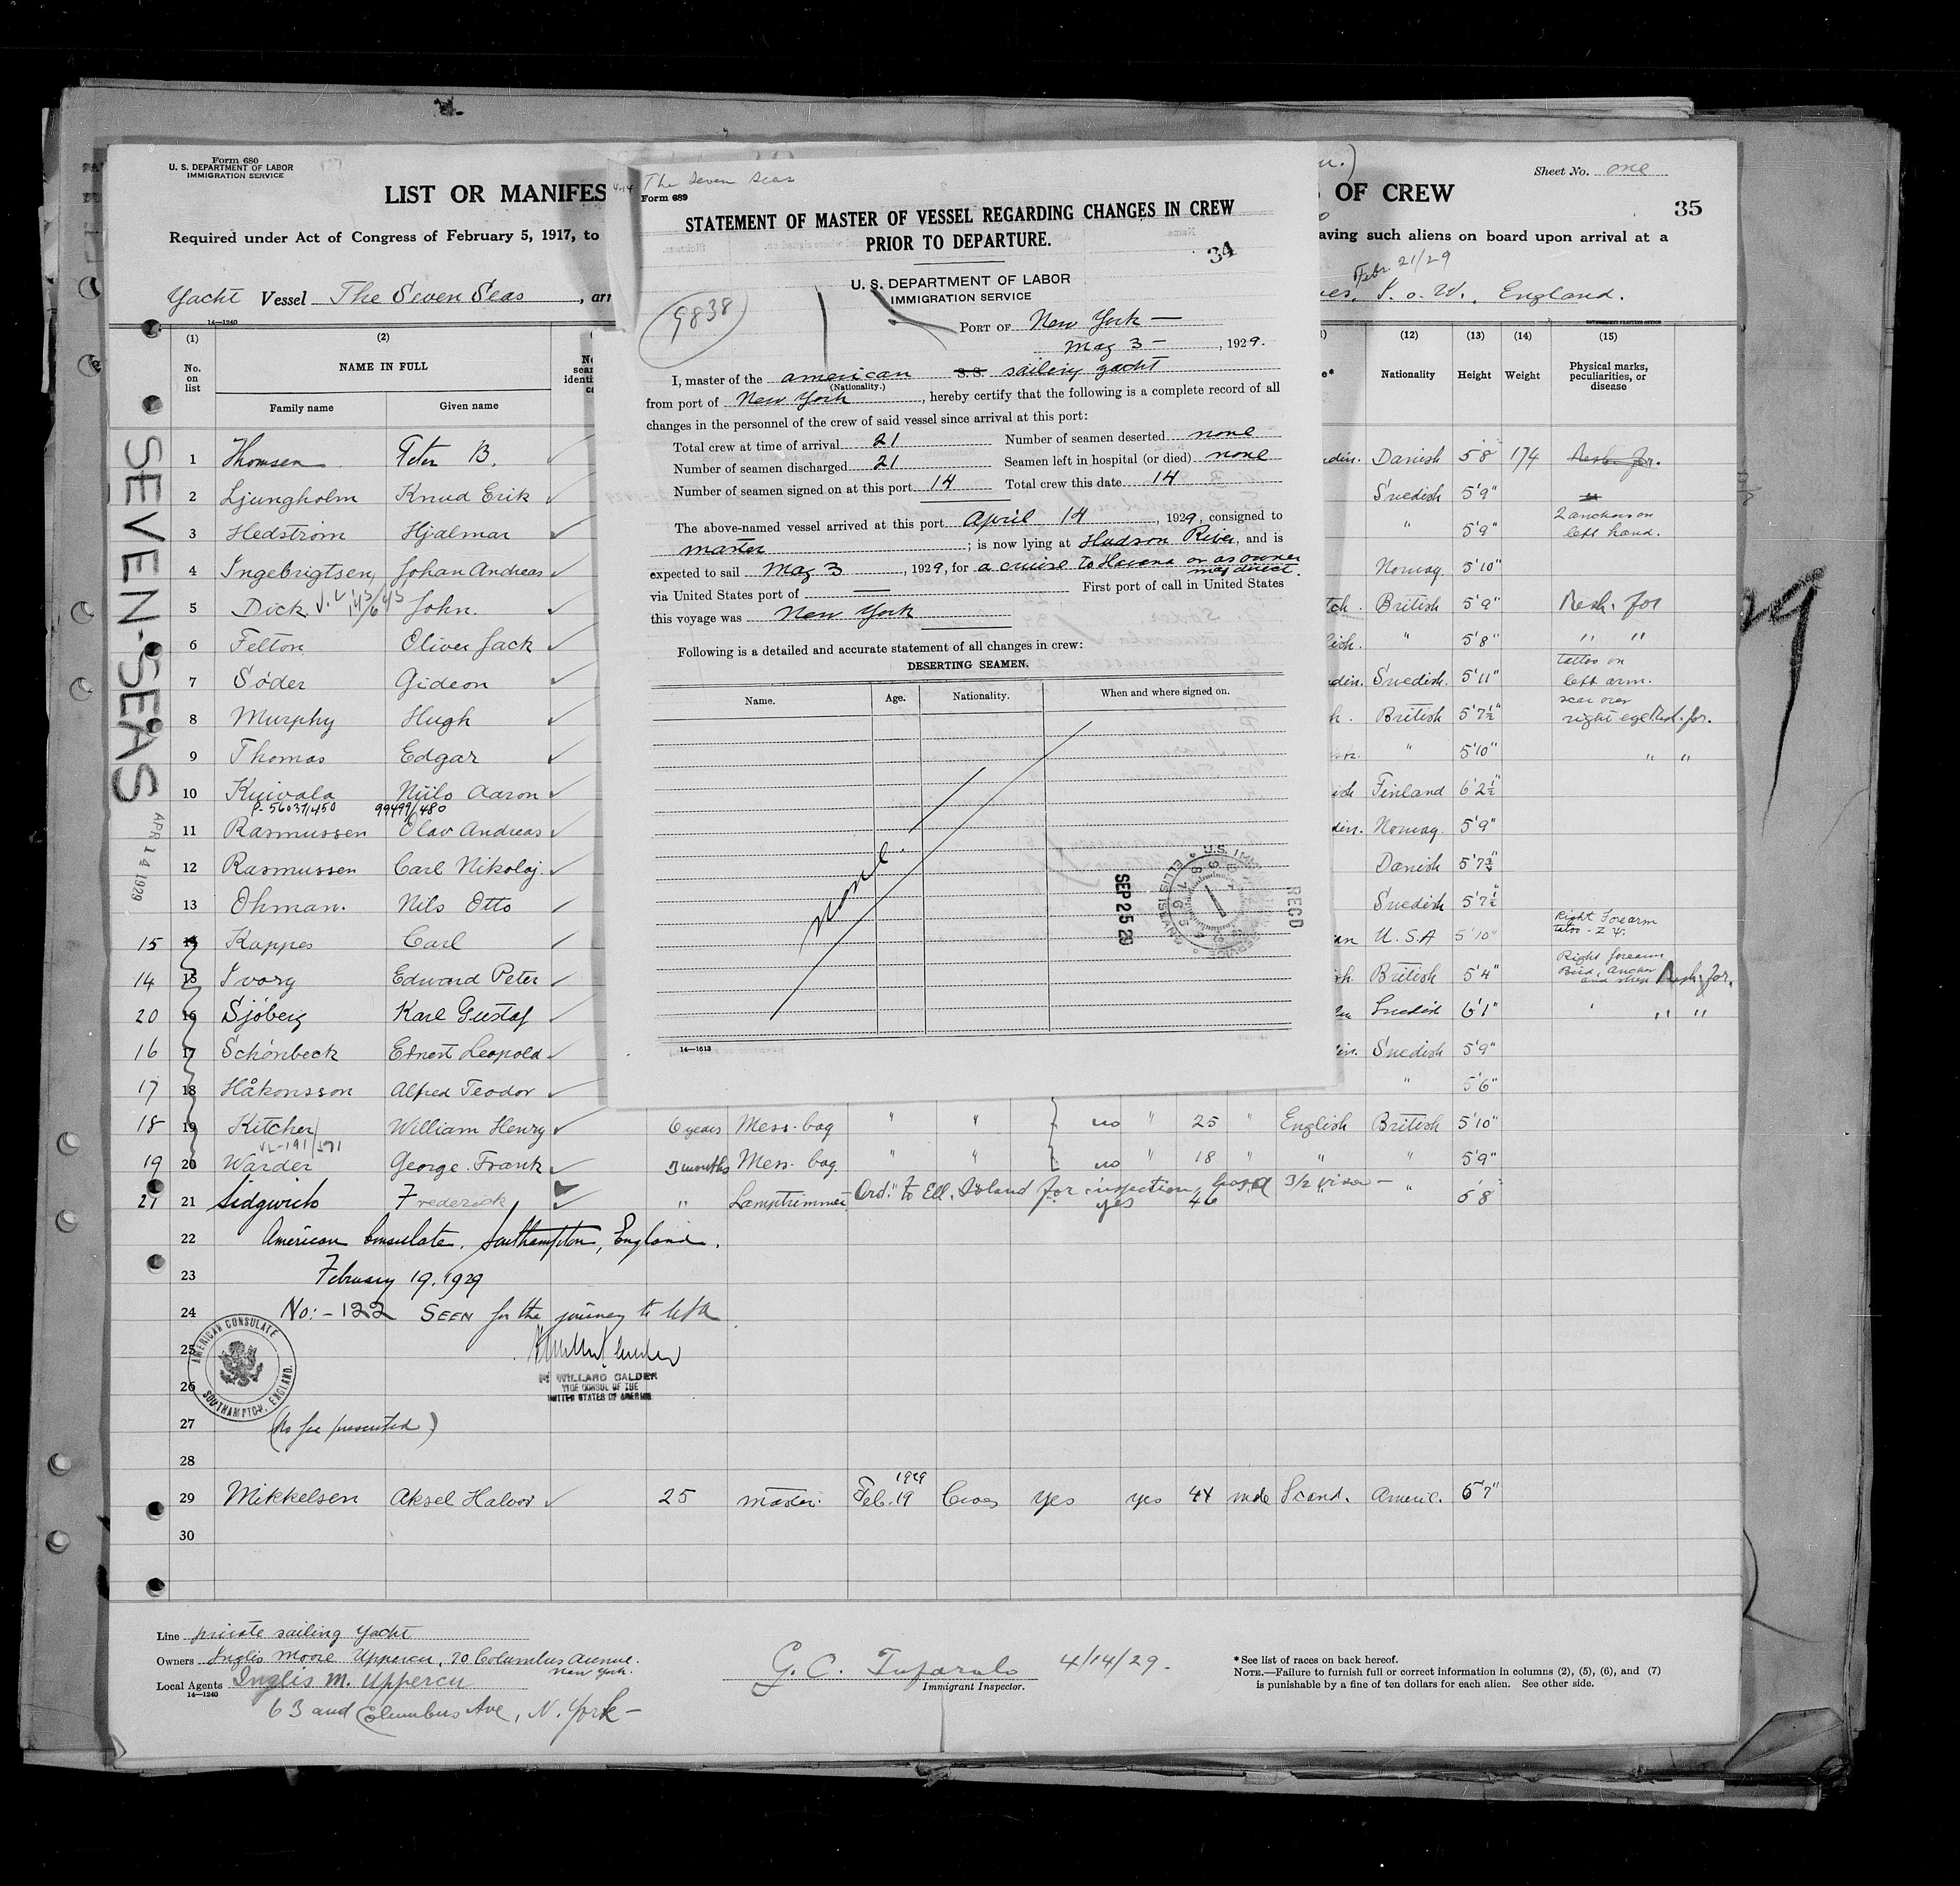 Form 680
U. S. DEPARTMENT OF LABOR
IMMIGRATION SERVICE
LIST OR MANIFES
OF CREW
Sheet No. one
35
Required under Act of Congress of February 5, 1917, to
aving such aliens on board upon arrival at a
Febr. 21/29
Yacht Vessel The Seven Seas, arr
es, I. o. W., England.
14—1240
(1) (2) (12) (13) (14) (15)
No. on list
NAME IN FULL
Family name Given name
Nationality Height Weight Physical marks, peculiarities, or disease
SEVEN-SEAS
APR 14 1929
1 Thomsen Peter B. Danish 5'8 174
2 Ljungholm Knud Erik Swedish 5'9"
3 Hedström Hjalmar " 5'9" 2 anchors on left hand.
4 Ingebrigtsen, Johan Andreas Norway 5'10"
5 Dick John. British 5'9" Resh. for
6 Felton Oliver Jack " 5'8" " "
7 Söder Gideon Swedish. 5'11" tattoo on left arm.
8 Murphy Hugh British 5'7½" scar over right eye Resh. for.
9 Thomas Edgar " 5'10" " "
10 Kuivala Niilo Aaron Finland 6'2½"
P-56037/450 99499/480
11 Rasmussen Olav Andreas Norway. 5'9"
12 Rasmussen Carl Nikolaj. Danish 5'7¾"
13 Öhman. Nils Otto Swedish 5'7½"
15 14 Kappes Carl U.S.A 5'10" Right Forearm tatoo
14 15 Ivory Edward Peter British 5'4" Right forearm Bird, anchor and ship Resh. for.
20 16 Sjöberg Karl Gustaf Swedish 6'1" " "
16 17 Schönbeck Ernest Leopold Swedish 5'9"
17 18 Håkonsson Alfred Teodor " 5'6"
18 19 Kitcher William Henry 6 years Mess-boy " " no " 25 " English British 5'10"
VL-191/571
19 20 Warder George Frank 3 months Mess-boy. " " no " 18 " " " 5'9"
Ord. to Ell. Island for inspection, 3/2 visa —
21 21 Sidgwick Frederick " Lamptrimmer yes 46 " 5'8
22 American Consulate, Southampton, England.
23 February 19, 1929
24 No:- 122 SEEN for the journey to USA
25
26
AMERICAN CONSULATE
SOUTHAMPTON, ENGLAND.
WILLARD CALDER
VICE CONSUL OF THE
UNITED STATES OF AMERICA
27 (No fee presented)
28
29 Mikkelsen Aksel Halvor 25 master. 1929 Feb. 19 Cowes yes yes 44 male Scand. Americ. 5'7"
30
Line private sailing Yacht
Owners Inglis Moore Uppercu, 70 Columbus Avenue. New York.
Local Agents Inglis M. Uppercu
14—1240
63 and Columbus Ave, N. York —
G. C. Tufarolo 4/14/29.
Immigrant Inspector.
*See list of races on back hereof.
NOTE.—Failure to furnish full or correct information in columns (2), (5), (6), and (7)
is punishable by a fine of ten dollars for each alien. See other side.
4.14 The Seven Seas
Form 689
STATEMENT OF MASTER OF VESSEL REGARDING CHANGES IN CREW
PRIOR TO DEPARTURE.
34
U. S. DEPARTMENT OF LABOR
IMMIGRATION SERVICE
9838
PORT OF New York —
May 3 —, 1929.
I, master of the american S.S. sailing yacht
(Nationality.)
from port of New York, hereby certify that the following is a complete record of all
changes in the personnel of the crew of said vessel since arrival at this port:
Total crew at time of arrival 21 Number of seamen deserted none
Number of seamen discharged 21 Seamen left in hospital (or died) none
Number of seamen signed on at this port 14 Total crew this date 14
The above-named vessel arrived at this port April 14, 1929, consigned to
master; is now lying at Hudson River, and is
expected to sail May 3, 1929, for a cruise to Havana or as owner may direct.
via United States port of — First port of call in United States
this voyage was New York
Following is a detailed and accurate statement of all changes in crew:
DESERTING SEAMEN.
Name. Age. Nationality. When and where signed on.
none.
SEP 25 29
RECD
14—1613